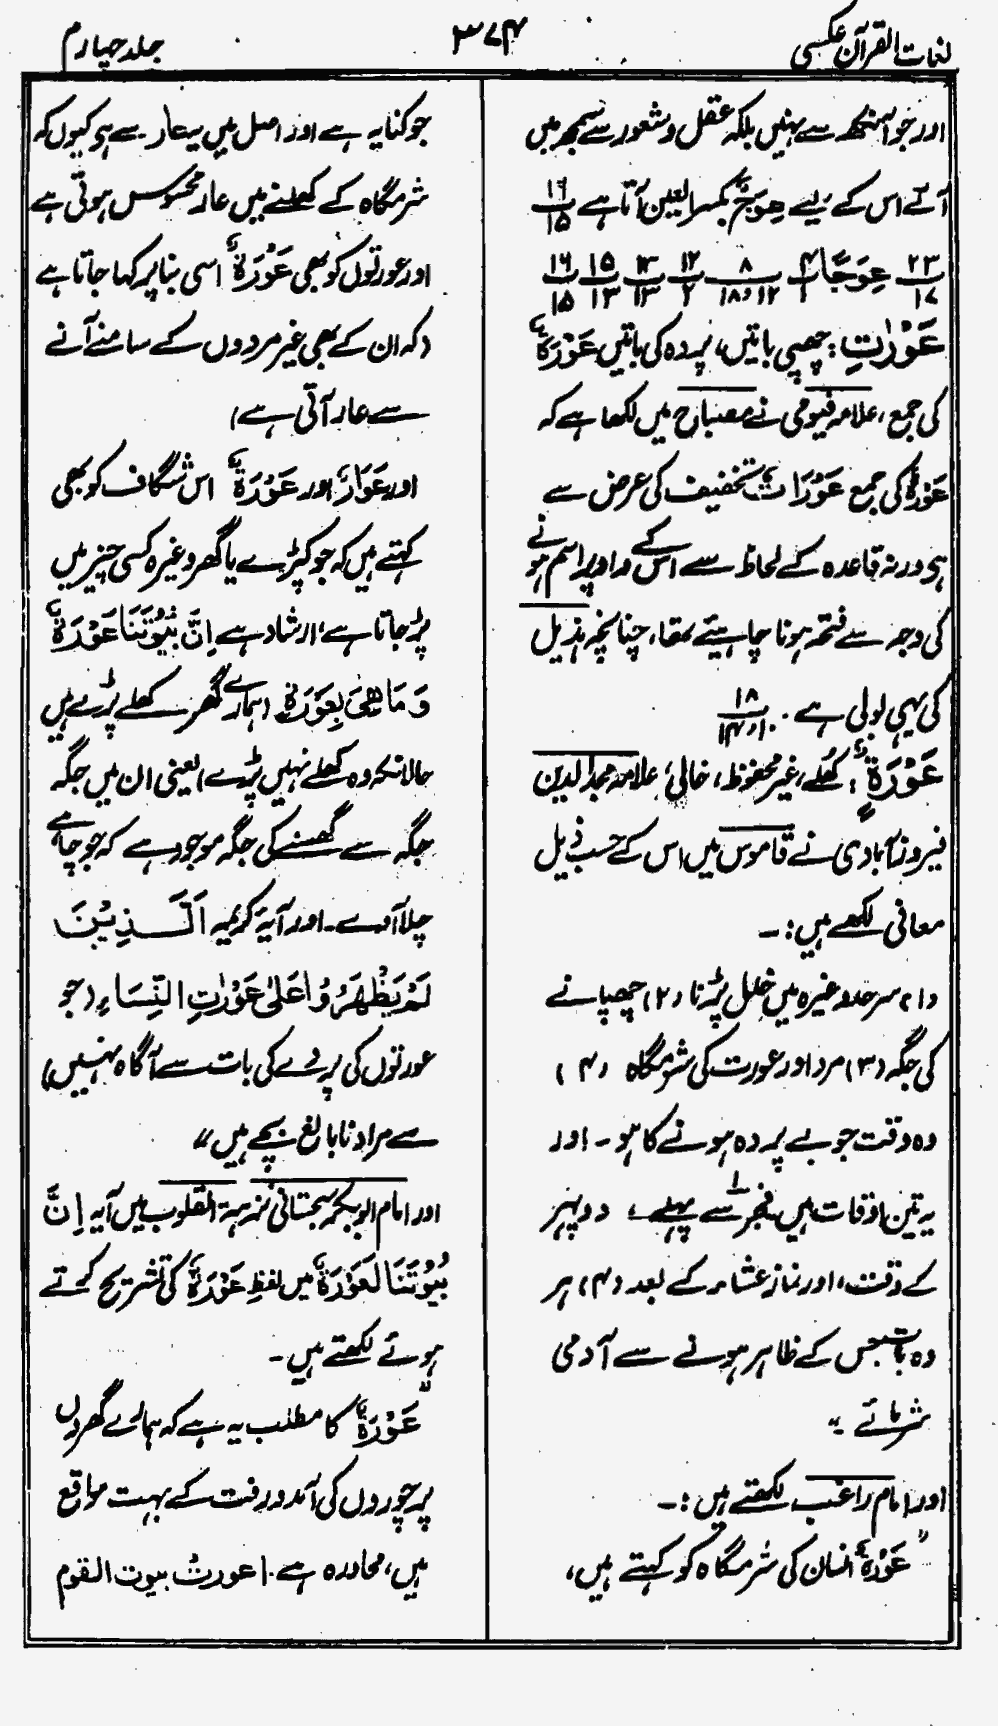 لغات القرآن عکسی
۳۷۴
جلد چہارم
اور جو آنکھ سے نہیں بلکہ عقل و شعور سے سمجھ میں
آئے اس کے لیے عِوَجٌ بکسر العین آتا ہے ۱۶/۱۵
۲۳/۱۷ عِوَجًا ۴/۱ ۸/۱۲و۱۸ ۱۲/۲ ۱۳/۱۳ ۱۵/۱۳ ۱۶/۱۵
عَوْرٰتِ: چھپی باتیں، پردہ کی باتیں عَوْرَۃٌ
کی جمع، علامہ فیومی نے مصباح میں لکھا ہے کہ
عَوْرَۃٌ کی جمع عَوْرَاتٌ تخفیف کی عرض سے
ہی ورنہ قاعدہ کے لحاظ سے اس کے واو پر اسم ہونے
کی وجہ سے فتحہ ہونا چاہیئے تھا، چنانچہ ہذیل
کی یہی بولی ہے ۔ ۱۸/۱۰و۱۴
عَوْرَۃٌ: کھلے، غیر محفوظ، خالی، علامہ مجد الدین
فیروز آبادی نے قاموس میں اس کے حسب ذیل
معانی لکھے ہیں:۔
(۱) سرحد وغیرہ میں خلل پڑنا (۲) چھپانے
کی جگہ (۳) مرد اور عورت کی شرمگاہ (۴)
وہ وقت جو بے پردہ ہونے کا ہو ۔ اور
یہ تین اوقات ہیں ۱ فجر سے پہلے، دوپہر
کے وقت، اور نماز عشاء کے بعد (۴) ہر
وہ بات جس کے ظاہر ہونے سے آدمی
شرمائے ۔"
اور امام راغب لکھتے ہیں:۔
"عَوْرَۃٌ انسان کی شرمگاہ کو کہتے ہیں،
جو کنایہ ہے اور اصل میں یہ عار سے ہی کیوں کہ
شرمگاہ کے کھلنے میں عار محسوس ہوتی ہے
اور عورتوں کو بھی عَوْرَۃٌ اسی بنا پر کہا جاتا ہے
(کہ ان کے بھی غیر مردوں کے سامنے آنے
سے عار آتی ہے)
اور عَوَارٌ اور عَوْرَۃٌ اس شگاف کو بھی
کہتے ہیں کہ جو کپڑے یا گھر وغیرہ کسی چیز میں
پڑ جاتا ہے، ارشاد ہے اِنَّ بُیُوْتَنَا عَوْرَۃٌ
وَمَا ھِیَ بِعَوْرَۃٍ (ہمارے گھر کھلے پڑے ہیں
حالانکہ وہ کھلے نہیں پڑے) یعنی ان میں جگہ
جگہ سے گھسنے کی جگہ موجود ہے کہ جو چاہے
چلا آوے ۔ اور آیۂ کریمہ اَلَّذِیْنَ
لَمْ یَظْھَرُوْا عَلٰی عَوْرٰتِ النِّسَاءِ (جو
عورتوں کی پردے کی بات سے آگاہ نہیں)
سے مراد نابالغ بچے ہیں"
اور امام ابوبکر سجستانی نزہۃ القلوب میں آیہ اِنَّ
بُیُوْتَنَا لَعَوْرَۃٌ میں لفظ عَوْرَۃٌ کی تشریح کرتے
ہوئے لکھتے ہیں ۔
"عَوْرَۃٌ کا مطلب یہ ہے کہ ہمارے گھروں
پر چوروں کی آمد و رفت کے بہت مواقع
ہیں، محاورہ ہے ۔ اعورتْ بیوت القوم